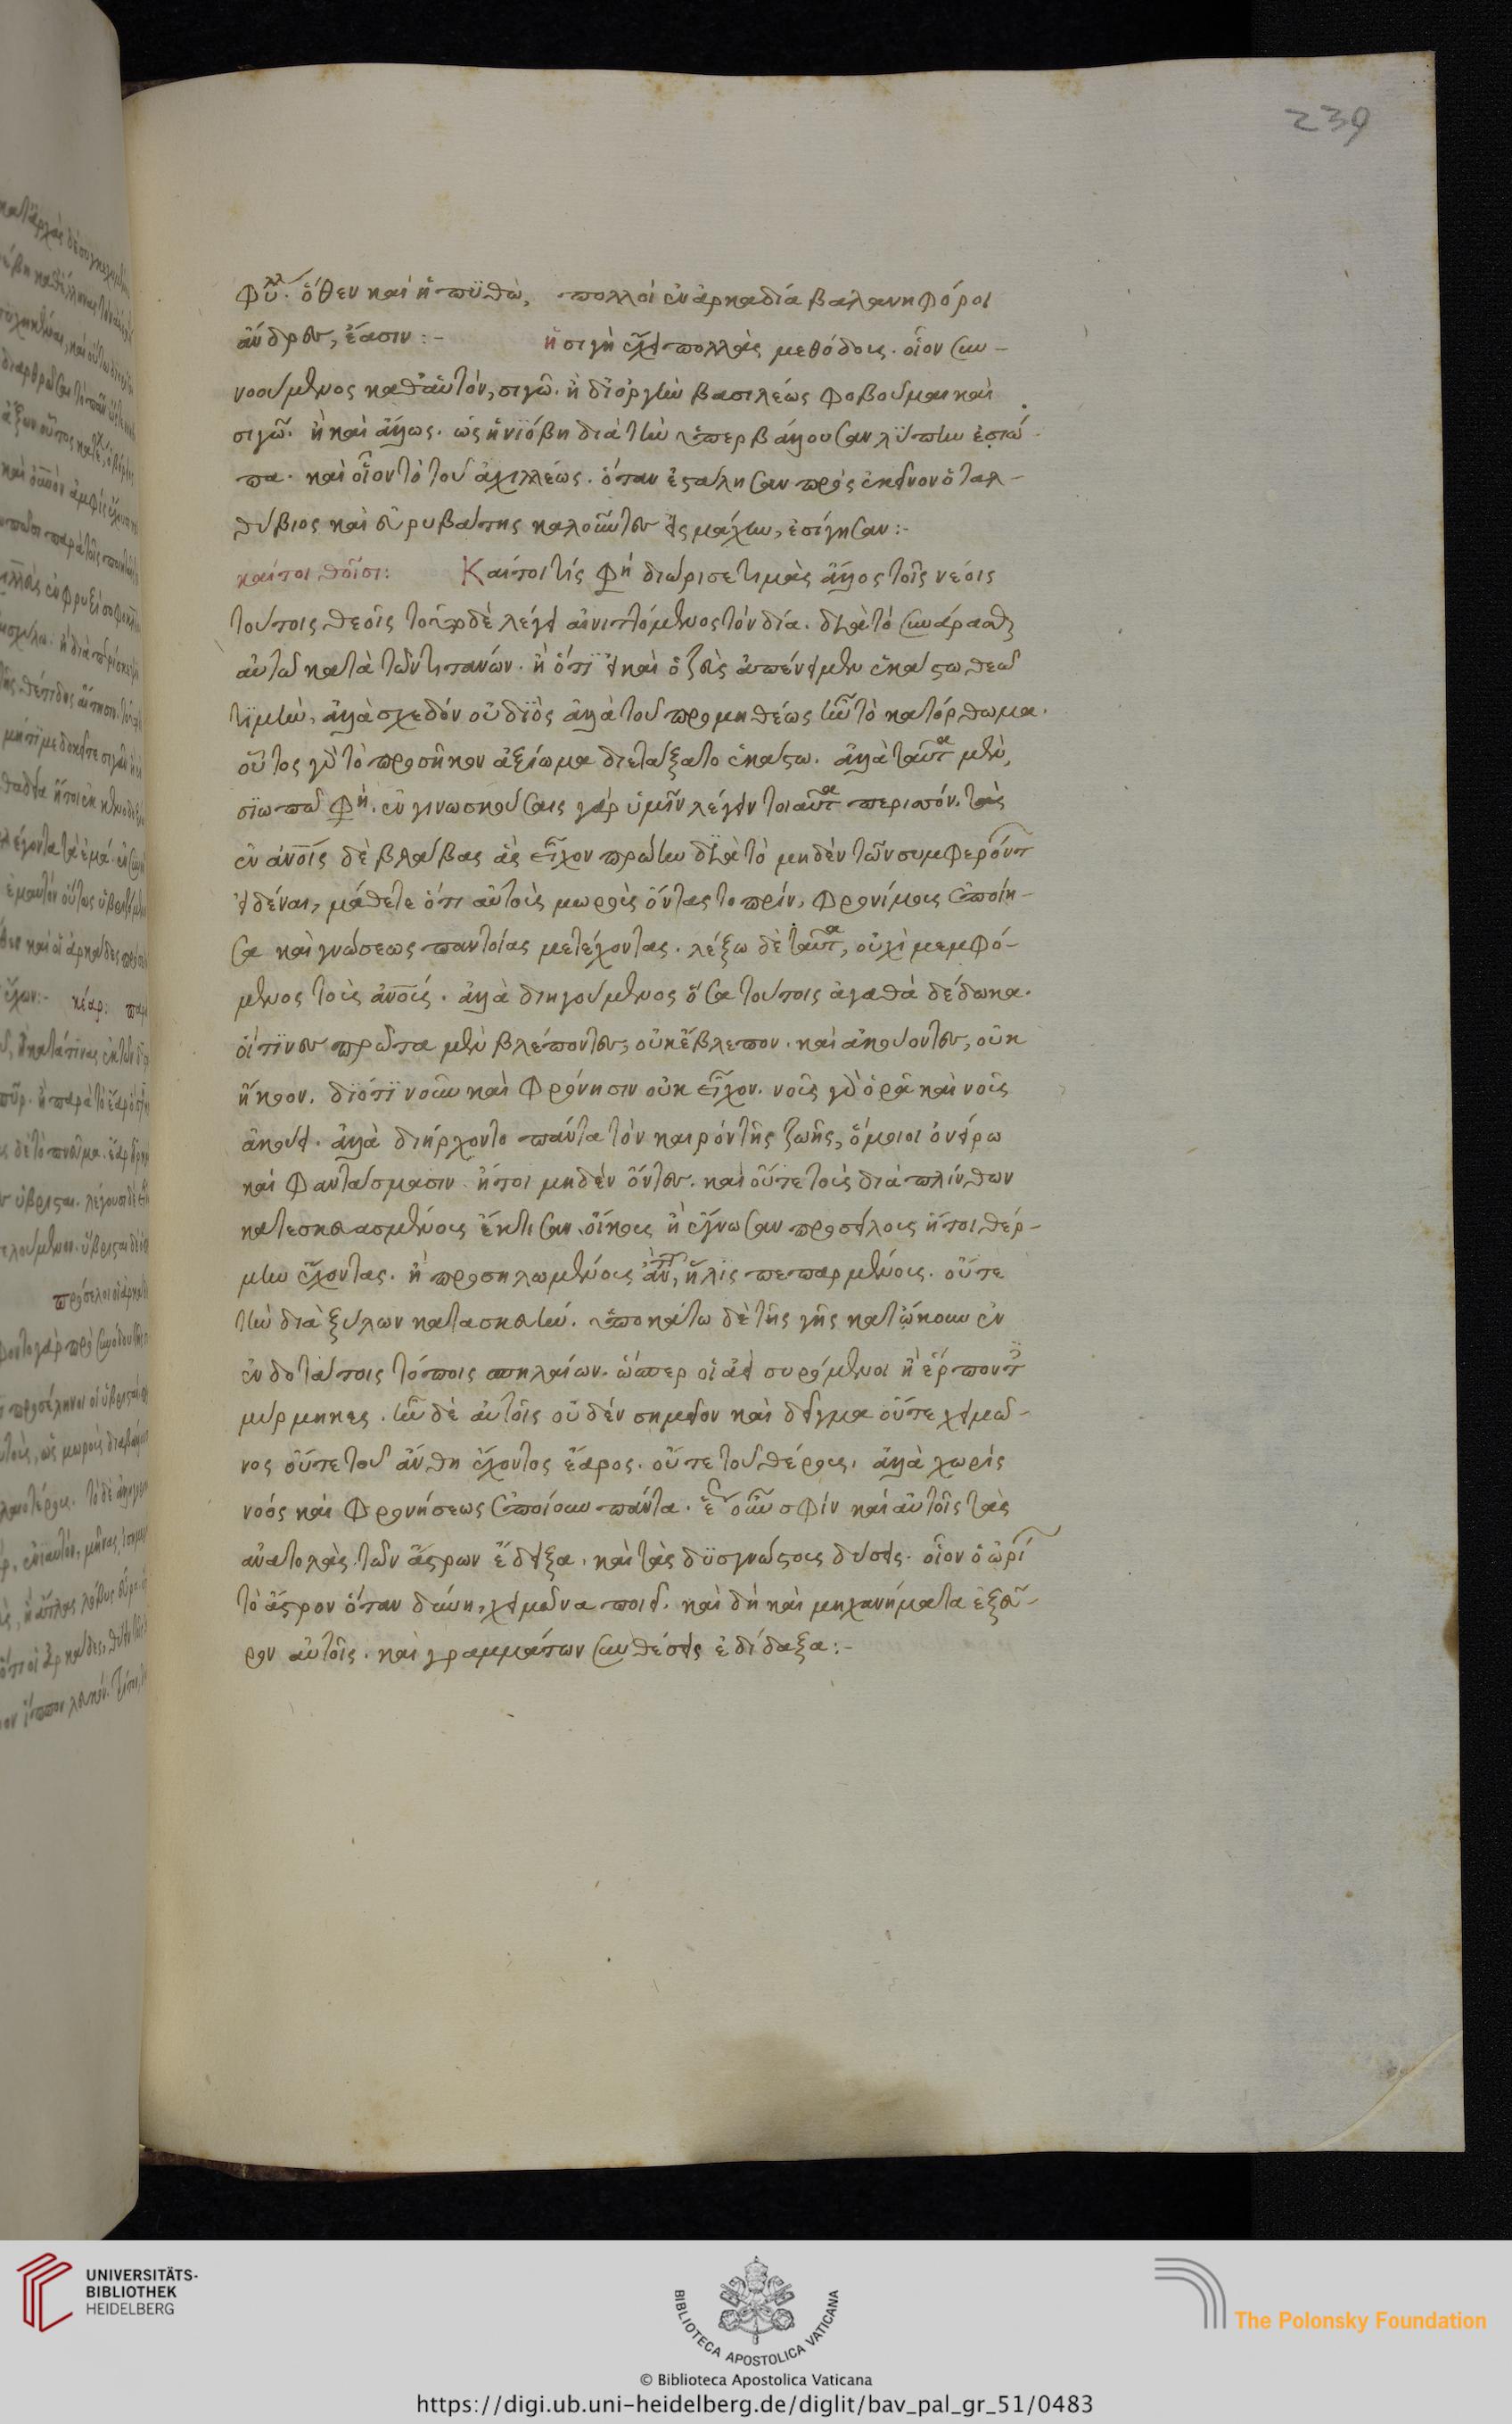 239
φύλλ. ὅθεν καὶ ἡ πϋθὼ, πολλοὶ ἐν ἀρκαδία βαλανηφόροι
ἄνδρες, ἔασιν :-  ἡ σιγὴ ἔχει πολλὰς μεθόδους. οἷον συν-
νοούμενος καθ' ἑαυτόν, σιγῶ. ἢ δι' ὀργὴν βασιλέως φοβοῦμαι καὶ
σιγῶ. ἢ καὶ ἄλλως. ὡς ἡ νϊόβη διὰ τὴν ὑπερβάλλουσαν λύπην ἐσιώ-
πα. καὶ οἷον τὸ τοῦ ἀχιλλέως. ὅταν ἐστάλησαν πρὸς ἐκεῖνον ὁ ταλ-
θύβιος καὶ εὐρυβάτης καλοῦντες εἰς μάχην, ἐσίγησαν :-
καίτοι θεοῖσι: Καίτοι τίς φη διώρισε τιμὰς ἄλλος τοῖς νέοις
τούτοις θεοῖς τοῦτο δὲ λέγει αἰνιττόμενος τὸν δία. διὰ τὸ συνάρασθαι
αὐτῶ κατὰ τῶν τιτανων. ἢ ὅτι εἰ καὶ ὁ ζεὺς ἀπένειμεν ἑκάστω θεῶ
τϊμὴν, ἀλλὰ σχεδὸν οὐ διὸς ἀλλὰ τοῦ προμηθέως ἦν τὸ κατόρθωμα.
οὗτος γὰρ τὸ προσῆκον ἀξίωμα διετάξατο ἑκάστω. ἀλλὰ ταῦτα μὲν,
σϊωπῶ φη. ἐν γινωσκούσαις γὰρ ὑμῖν λέγειν τοιαῦτα περιττόν. τὰς
ἐν ἀνοῖς δὲ βλάβας ἃς εἶχον πρώην διὰ τὸ μηδὲν τῶν συμφερόντ
εἰδέναι, μάθετε ὅτι αὐτοὺς μωροὺς ὄντας το πρίν, φρονίμους ἐποίη-
σα καὶ γνώσεως παντοίας μετέχοντας. λέξω δὲ ταῦτα, οὐχὶ μεμφό-
μενος τοὺς ἀνους. ἀλλὰ διηγούμενος ὅσα τούτοις ἀγαθὰ δέδωκα.
οἵτινες πρῶτα μὲν βλέποντες, οὐκ ἔβλεπον. καὶ ἀκούοντες, οὐκ
ἤκουον. διότϊ νοῦν καὶ φρόνησιν οὐκ εἶχον. νοῦς γὰρ ὁρᾶ καὶ νοῦς
ἀκούει. ἀλλὰ διήρχοντο πάντα τὸν καιρὸν τῆς ζωῆς, ὅμοιοι ὀνείρω
καὶ φαντάσμασιν ἤτοι μηδὲν ὄντες. καὶ οὔτε τοὺς διὰ πλίνθων
κατεσκευασμένους ἔκτισαν οἴκους ἢ ἔγνωσαν προσείλους ἤτοι θέρ-
μην ἔχοντας. ἢ προσηλωμένους ἀντὶ, ἥλοις πεπαρμένους. οὔτε
τὴν διὰ ξύλων κατασκευήν. ὑποκάτω δὲ τῆς γῆς κατώκουν ἐν
ἐνδοτάτοις τόποις σπηλαίων. ὥσπερ οἱ ἀεὶ συρόμενοι ἢ ἕρποντες
μύρμηκες. ἦν δὲ αὐτοῖς οὐδὲν σημεῖον καὶ δεῖγμα οὔτε χειμῶ-
νος οὔτε τοῦ ἄνθη ἔχοντος ἔαρος. οὔτε τοῦ θέρους. ἀλλὰ χωρὶς
νοὸς καὶ φρονήσεως ἐποίουν πάντα. ἕως οὗν σφὶν καὶ αὐτοῖς τὰς
ἀνατολὰς τῶν ἄστρων ἔδειξα. καὶ τὰς δϋσγνώστους δύσεις. οἷον ὁ ὠρί
τὸ ἄστρον ὅταν δύνη, χειμῶνα ποιεῖ. καὶ δὴ καὶ μηχανήματα ἐξεῦ-
ρον αὐτοῖς. καὶ γραμμάτων συνθέσεις ἐδίδαξα :-
UNIVERSITÄTS-
BIBLIOTHEK
HEIDELBERG
BIBLIOTECA APOSTOLICA VATICANA
The Polonsky Foundation
© Biblioteca Apostolica Vaticana
https://digi.ub.uni-heidelberg.de/diglit/bav_pal_gr_51/0483